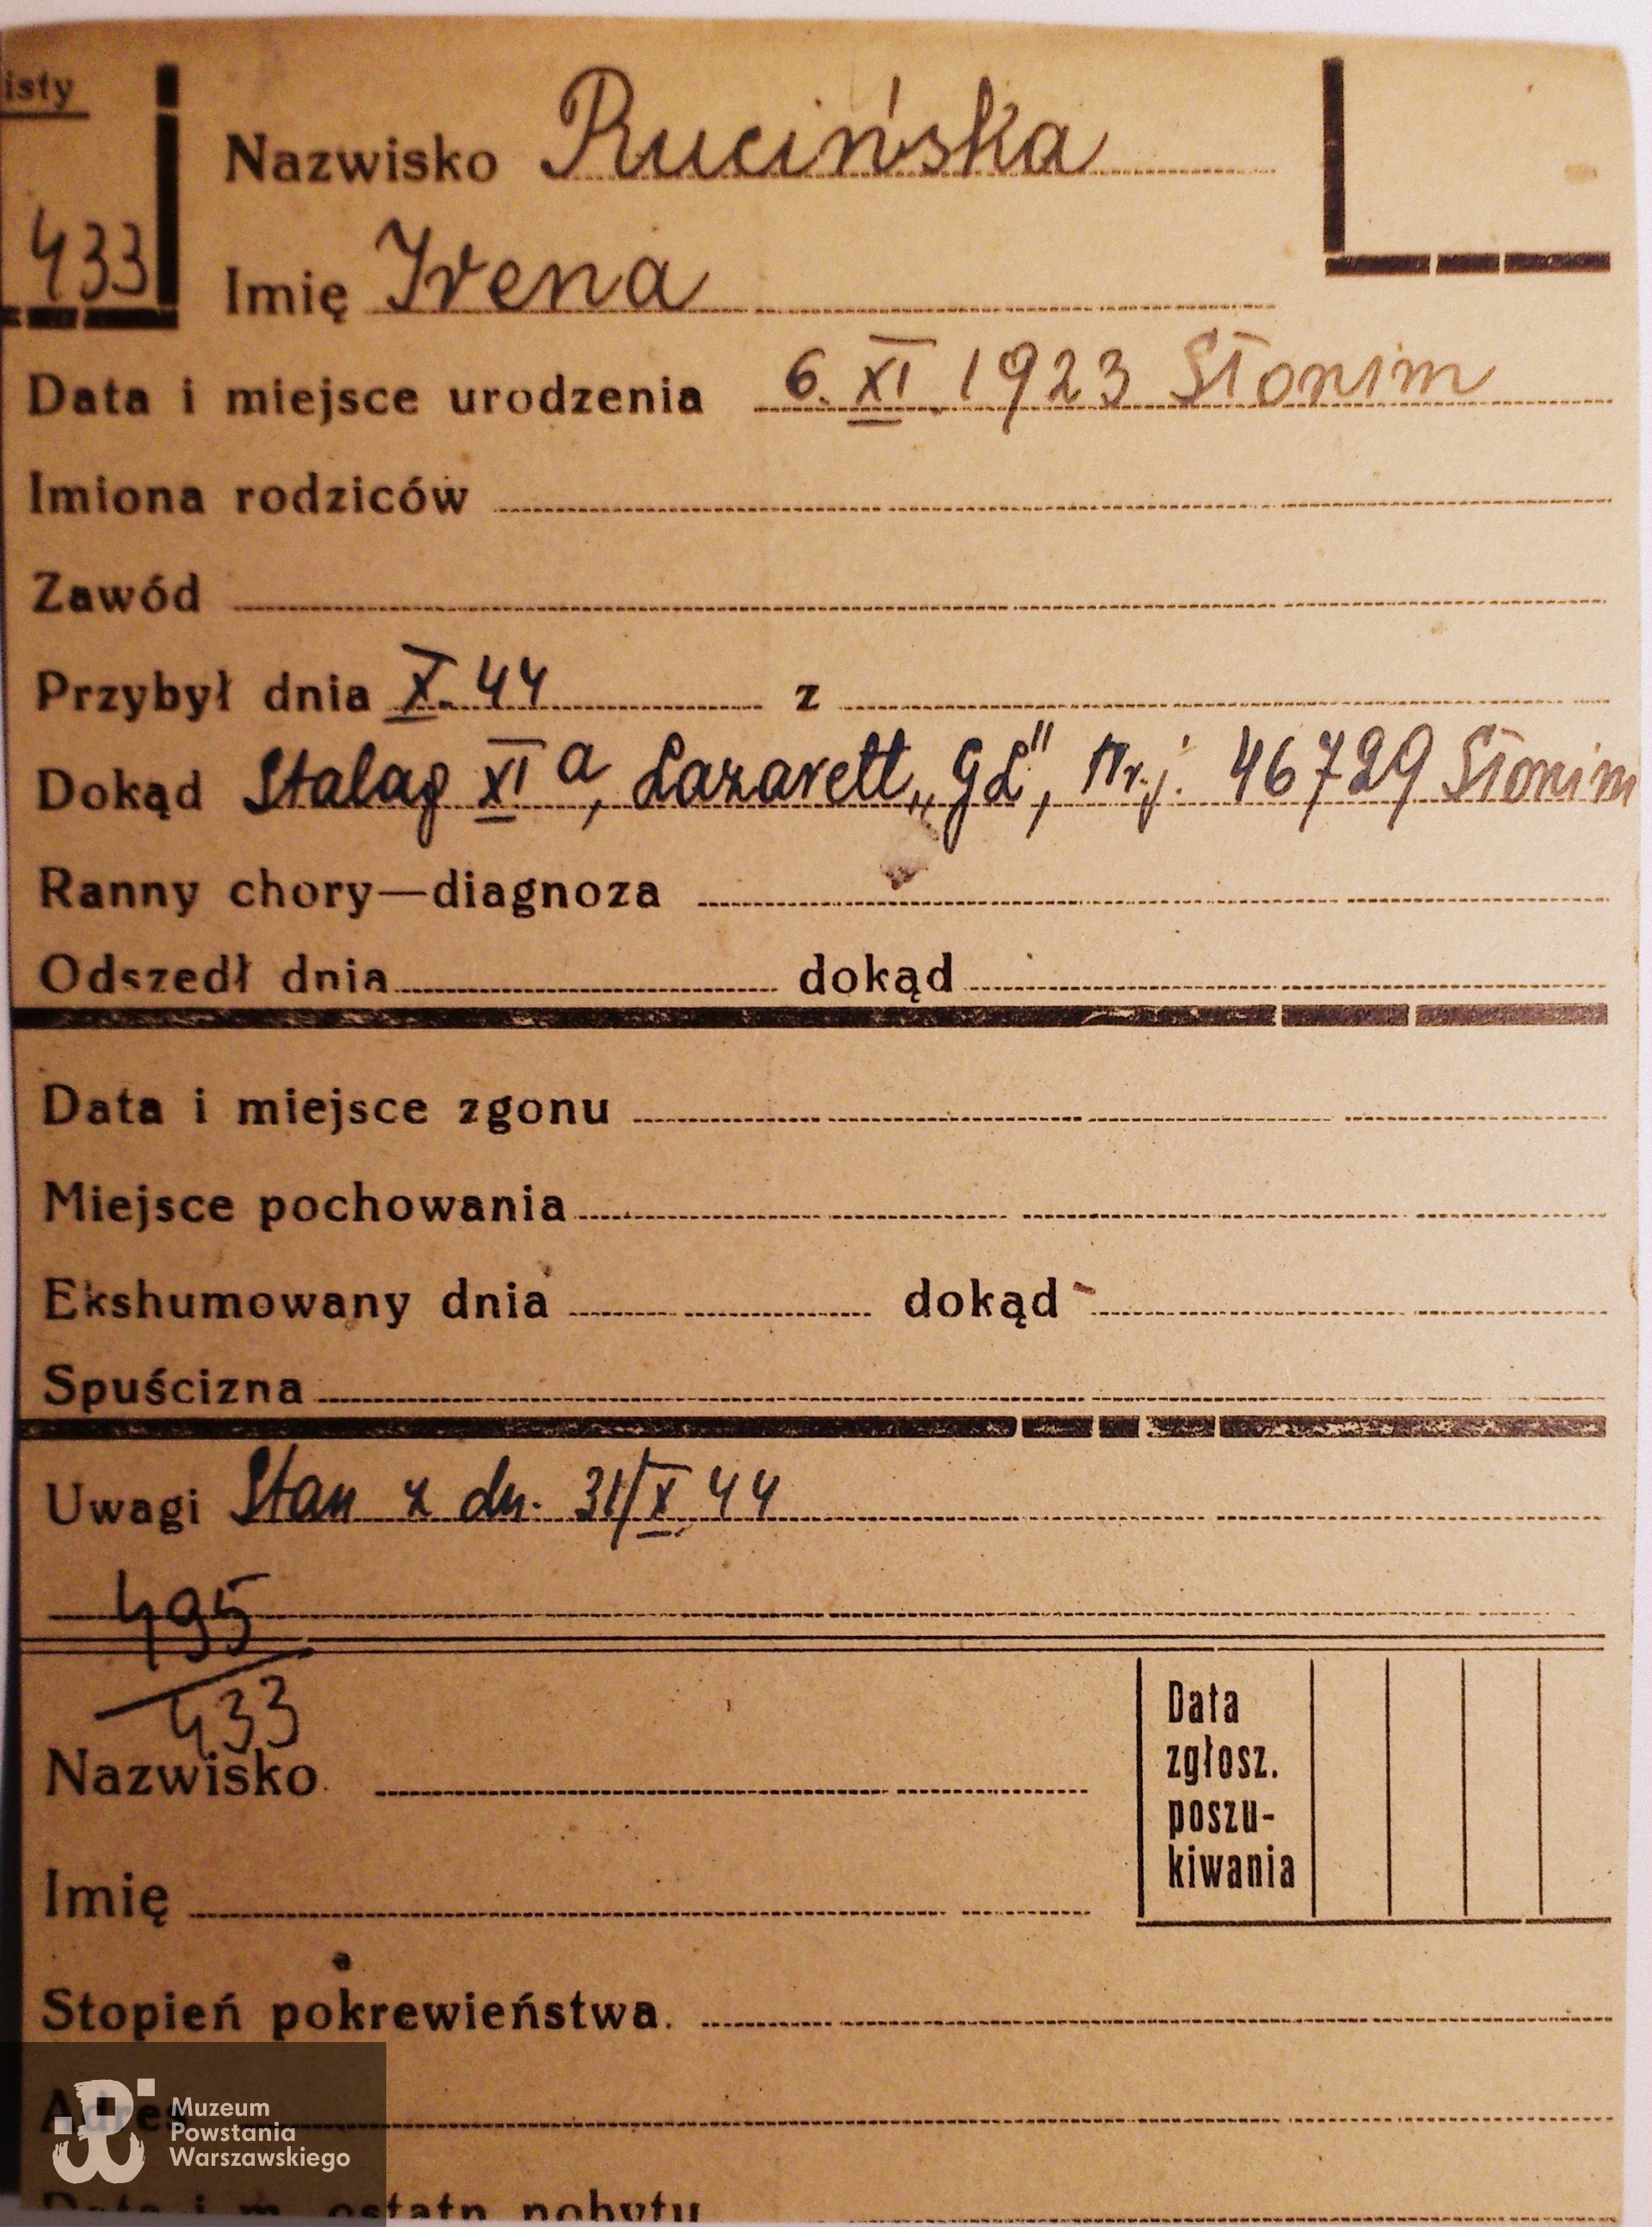 isty
433
Nazwisko Rucińska
Imię Irena
Data i miejsce urodzenia 6. XI. 1923 Słonim
Imiona rodziców
Zawód
Przybył dnia X. 44 z
Dokąd Stalag XI a, Lazarett „GŁ", Nr. j. 46729 Słonim
Ranny chory—diagnoza
Odszedł dnia dokąd
Data i miejsce zgonu
Miejsce pochowania
Ekshumowany dnia dokąd
Spuścizna
Uwagi Stan z dn. 31/X. 44
495
433
Nazwisko
Imię
Data
zgłosz.
poszu-
kiwania
Stopień pokrewieństwa.
Adres
Data i m. ostatn pobytu
Muzeum
Powstania
Warszawskiego